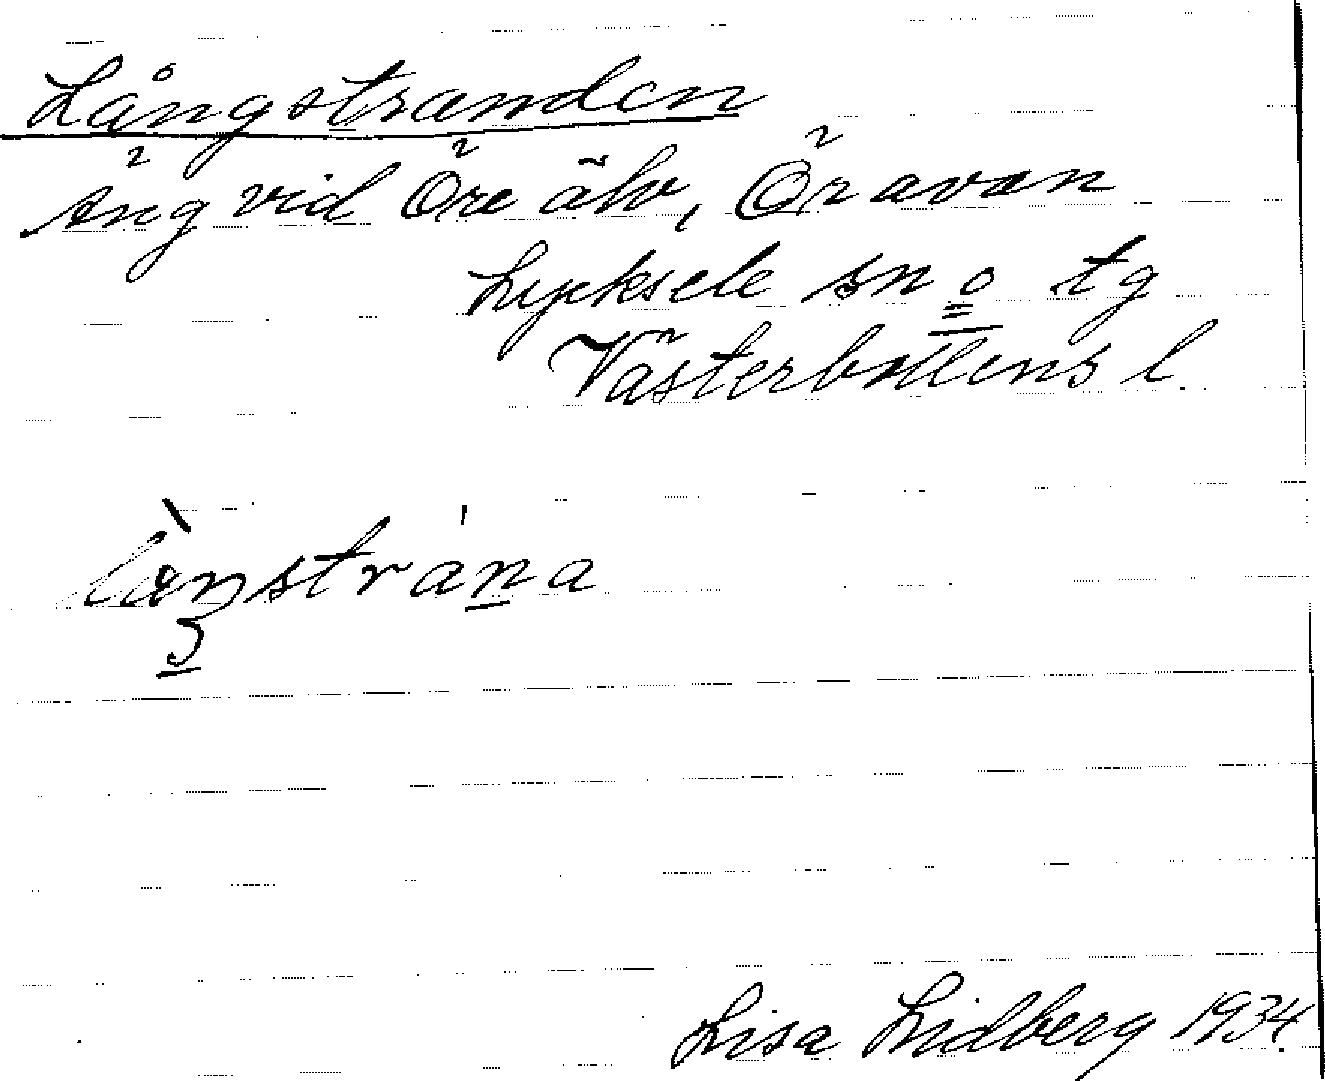 Långstranden
Äng vid Öre älv, Öravan
Lycksele sn o tg
Västerbottens l.
Lisa Lidberg 1934.